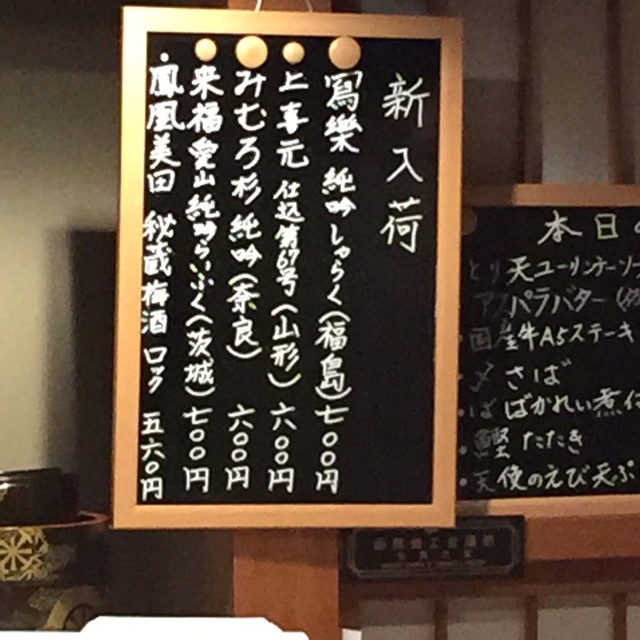 新入荷
寫樂 純吟 しゃらく(福島)七〇〇円
上喜元 仕込第67号(山形)六〇〇円
みむろ杉 純吟(奈良)六〇〇円
来福 愛山 純吟 らいふく(茨城)七〇〇円
・鳳凰美田 秘蔵梅酒 ロック 五六〇円
本日の
とり天ユーリンチーソー
アスパラバター
・国産牛A5ステーキ
・〆さば
・ばばかれい煮付
・鰹たたき
・天使のえび天ぷ